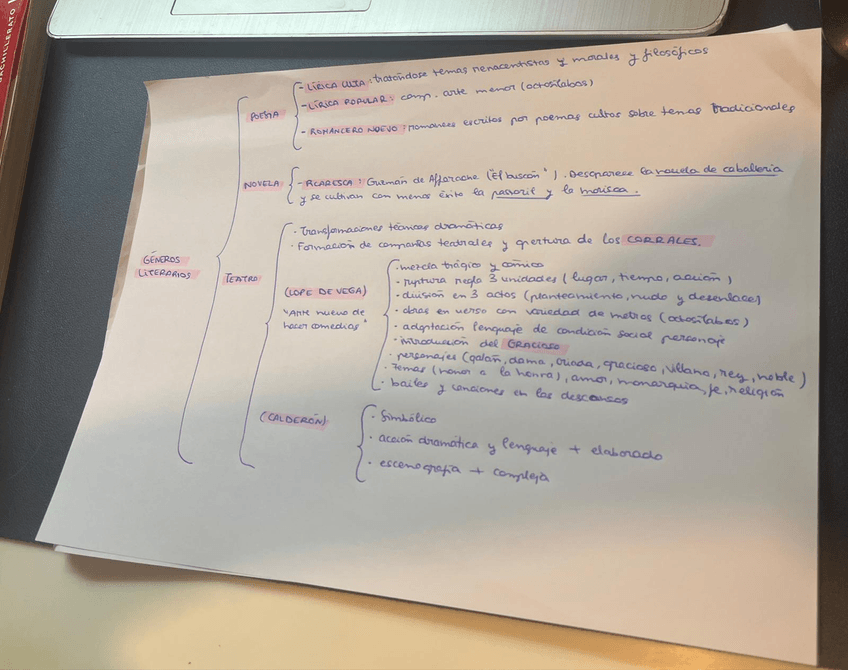 BACHILLERATO
GÉNEROS
LITERARIOS
POESÍA
- LÍRICA CULTA: tratándose temas renacentistas y morales y filosóficos
- LÍRICA POPULAR: comp. arte menor (octosílabos)
- ROMANCERO NUEVO: romances escritos por poemas cultos sobre temas tradicionales
NOVELA
- PICARESCA: Guzmán de Alfarache ("El buscón"). Desaparece la novela de caballería
y se cultivan con menos éxito la pastoril y la morisca.
TEATRO
· Transformaciones técnicas dramáticas
· Formación de compañías teatrales y apertura de los CORRALES.
(LOPE DE VEGA)
"Arte nuevo de
hacer comedias"
· mezcla trágico y cómico
· ruptura regla 3 unidades (lugar, tiempo, acción)
· división en 3 actos (planteamiento, nudo y desenlace)
· obras en verso con variedad de metros (octosílabos)
· adaptación lenguaje de condición social personaje
· introducción del GRACIOSO
· personajes (galán, dama, criada, gracioso, villano, rey, noble)
· Temas (honor a la honra), amor, monarquía, fe, religión
· bailes y canciones en los descansos
(CALDERÓN)
· Simbólico
· acción dramática y lenguaje + elaborado
· escenografía + compleja